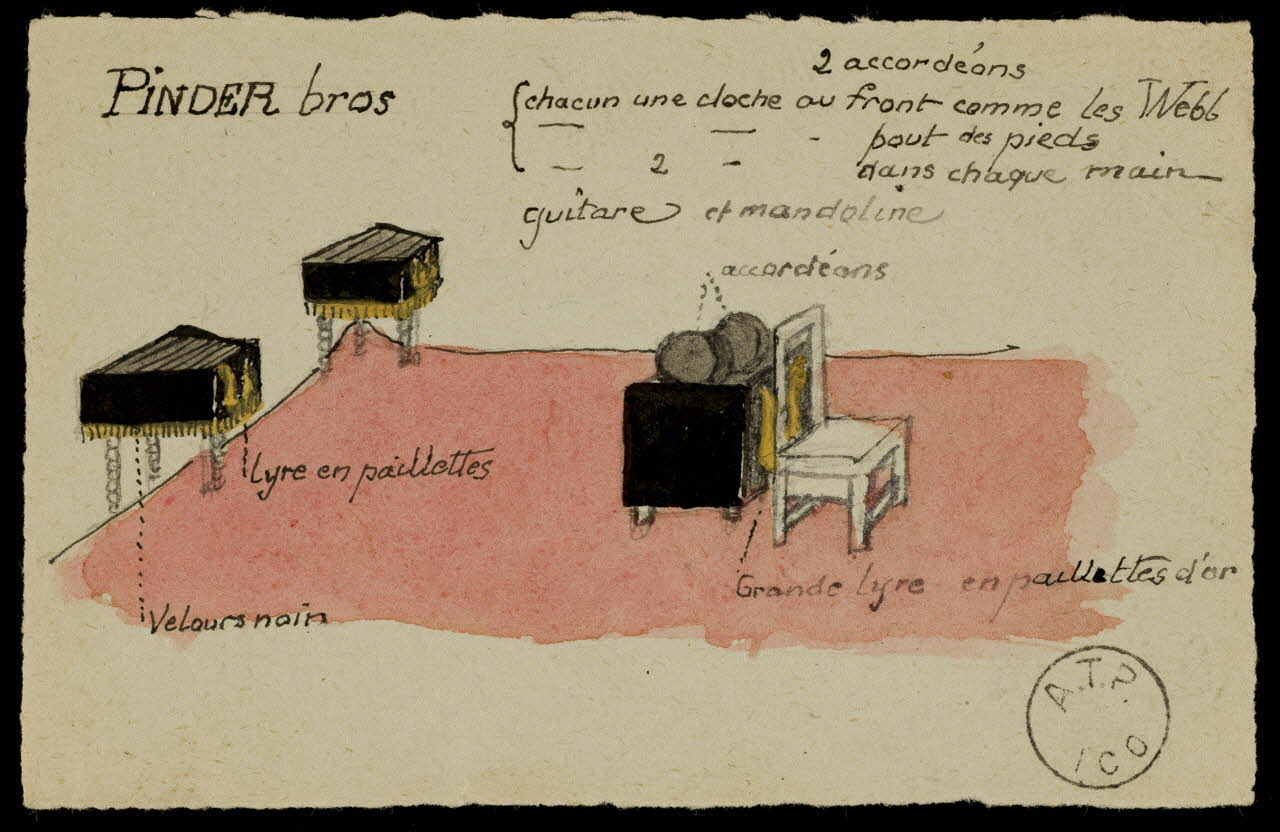 PINDER bros
2 accordéons
chacun une cloche au front comme les Webb
— — - bout des pieds
— 2 — dans chaque main
guitare et mandoline
accordéons
Lyre en paillettes
Grande lyre en paillettes d'or
Velours noir
A.T.P.
ICO